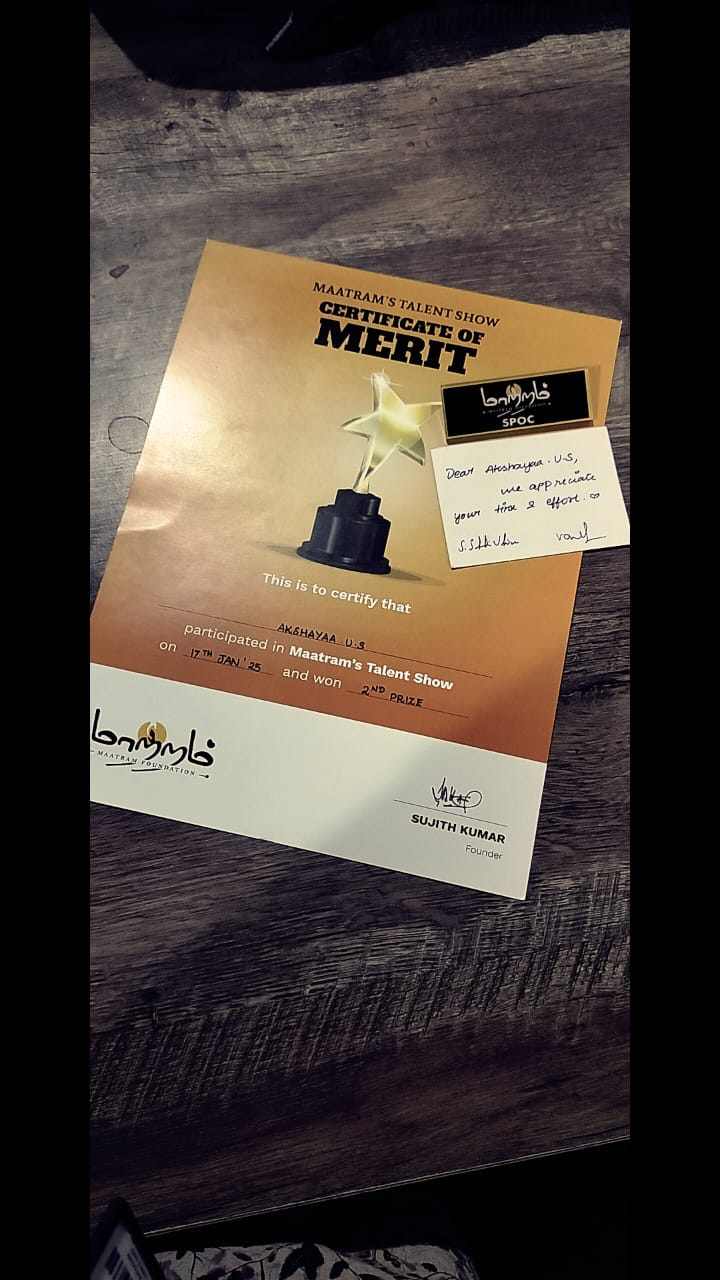 MAATRAM'S TALENT SHOW
CERTIFICATE OF
MERIT
மாற்றம்
MAATRAM FOUNDATION
SPOC
Dear Akshayaa. U-S,
we appreciate
your time & effort.
This is to certify that
AKSHAYAA U-S
participated in Maatram's Talent Show
on 17TH JAN '25 and won 2ND PRIZE
மாற்றம்
MAATRAM FOUNDATION
SUJITH KUMAR
Founder